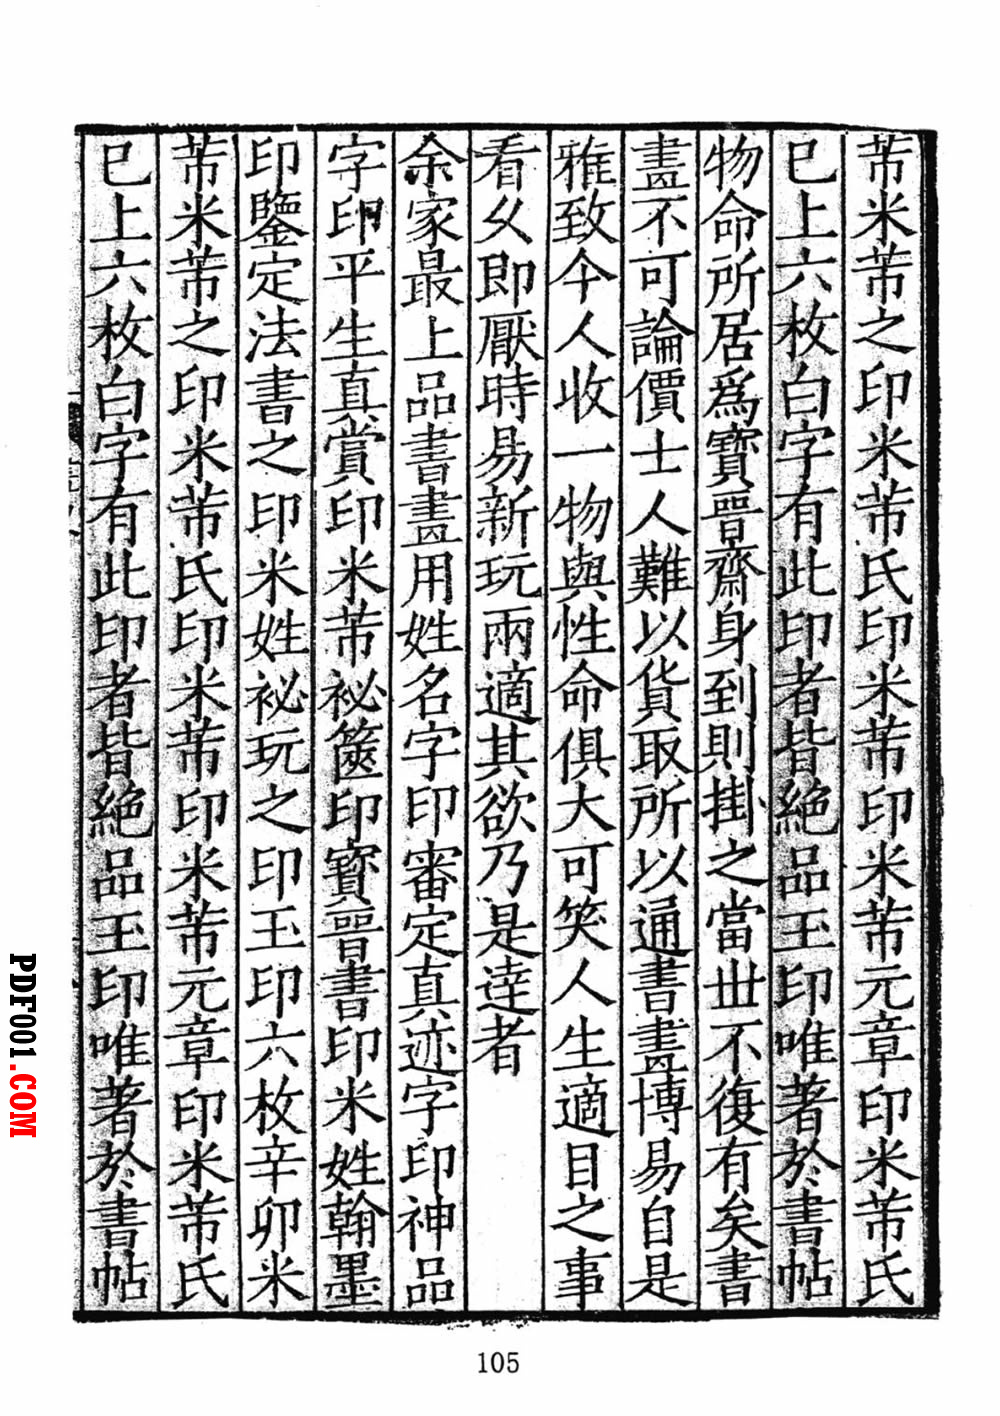 芾米芾之印米芾氏印米芾印米芾元章印米芾氏
已上六枚白字有此印者皆絶品玉印唯著於書帖
物命所居爲寳晉齋身到則掛之當丗不復有矣書
畫不可論價士人難以貨取所以通書畫博易自是
雅致今人收一物與性命俱大可笑人生適目之事
看乆即厭時易新玩兩適其欲乃是逹者
余家最上品書畫用姓名字印審定真迹字印神品
字印平生真賞印米芾祕篋印寳晉書印米姓翰墨
印鑒定法書之印米姓祕玩之印玉印六枚辛卯米
芾米芾之印米芾氏印米芾印米芾元章印米芾氏
已上六枚白字有此印者皆絶品玉印唯著於書帖
105
PDF001.COM